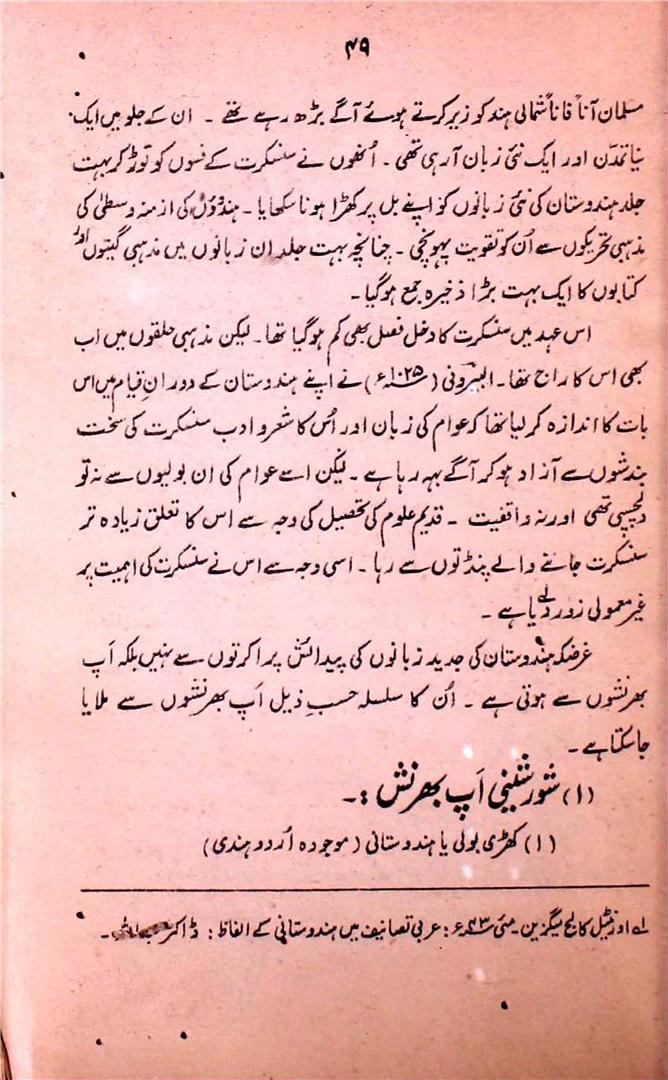 ۴۹
مسلمان آناً فاناً شمالی ہند کو زیر کرتے ہوئے آگے بڑھ رہے تھے ۔ ان کے جلو میں ایک
نیا تمدن اور ایک نئی زبان آ رہی تھی ۔ اُنھوں نے سنسکرت کے فسوں کو توڑ کر بہت
جلد ہندوستان کی نئی زبانوں کو اپنے بل پر کھڑا ہونا سکھایا ۔ ہندوؤں کی ازمنہ وسطیٰ کی
مذہبی تحریکوں سے اُن کو تقویت پہونچی ۔ چنانچہ بہت جلد ان زبانوں میں مذہبی گیتوں اور
کتابوں کا ایک بہت بڑا ذخیرہ جمع ہوگیا ۔
اس عہد میں سنسکرت کا دخل فصل بھی کم ہوگیا تھا ۔ لیکن مذہبی حلقوں میں اب
بھی اس کا راج تھا ۔ البیرونی (۱۰۲۵ء) نے اپنے ہندوستان کے دورانِ قیام میں اس
بات کا اندازہ کر لیا تھا کہ عوام کی زبان اور اُس کا شعر و ادب سنسکرت کی سخت
بندشوں سے آزاد ہو کر آگے بہہ رہا ہے ۔ لیکن اسے عوام کی ان بولیوں سے نہ تو
دلچسپی تھی اور نہ واقفیت ۔ قدیم علوم کی تحصیل کی وجہ سے اس کا تعلق زیادہ تر
سنسکرت جاننے والے پنڈتوں سے رہا ۔ اسی وجہ سے اس نے سنسکرت کی اہمیت پر
غیر معمولی زور دیا ہے ۔
غرضکہ ہندوستان کی جدید زبانوں کی پیدائش پراکرتوں سے نہیں بلکہ اَپ
بھرنشوں سے ہوتی ہے ۔ اُن کا سلسلہ حسبِ ذیل اَپ بھرنشوں سے ملایا
جا سکتا ہے ۔
(۱) شورسینی اَپ بھرنش :۔
(۱) کھڑی بولی یا ہندوستانی (موجودہ اُردو ہندی)
لے اورنٹیل کالج میگزین ۔ مئی ۴۳ء : عربی تصانیف میں ہندوستانی کے الفاظ : ڈاکٹر ۔